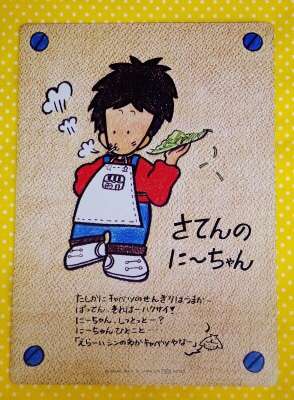 さてんの
に〜ちゃん
たしかにキャベツのせんぎりはうまか〜
ばってん、きれは〜ハクサイ!
に〜ちゃん、しっとっと〜?
に〜ちゃんひとこと…
「えら〜いシンのあかキャベツやな〜」